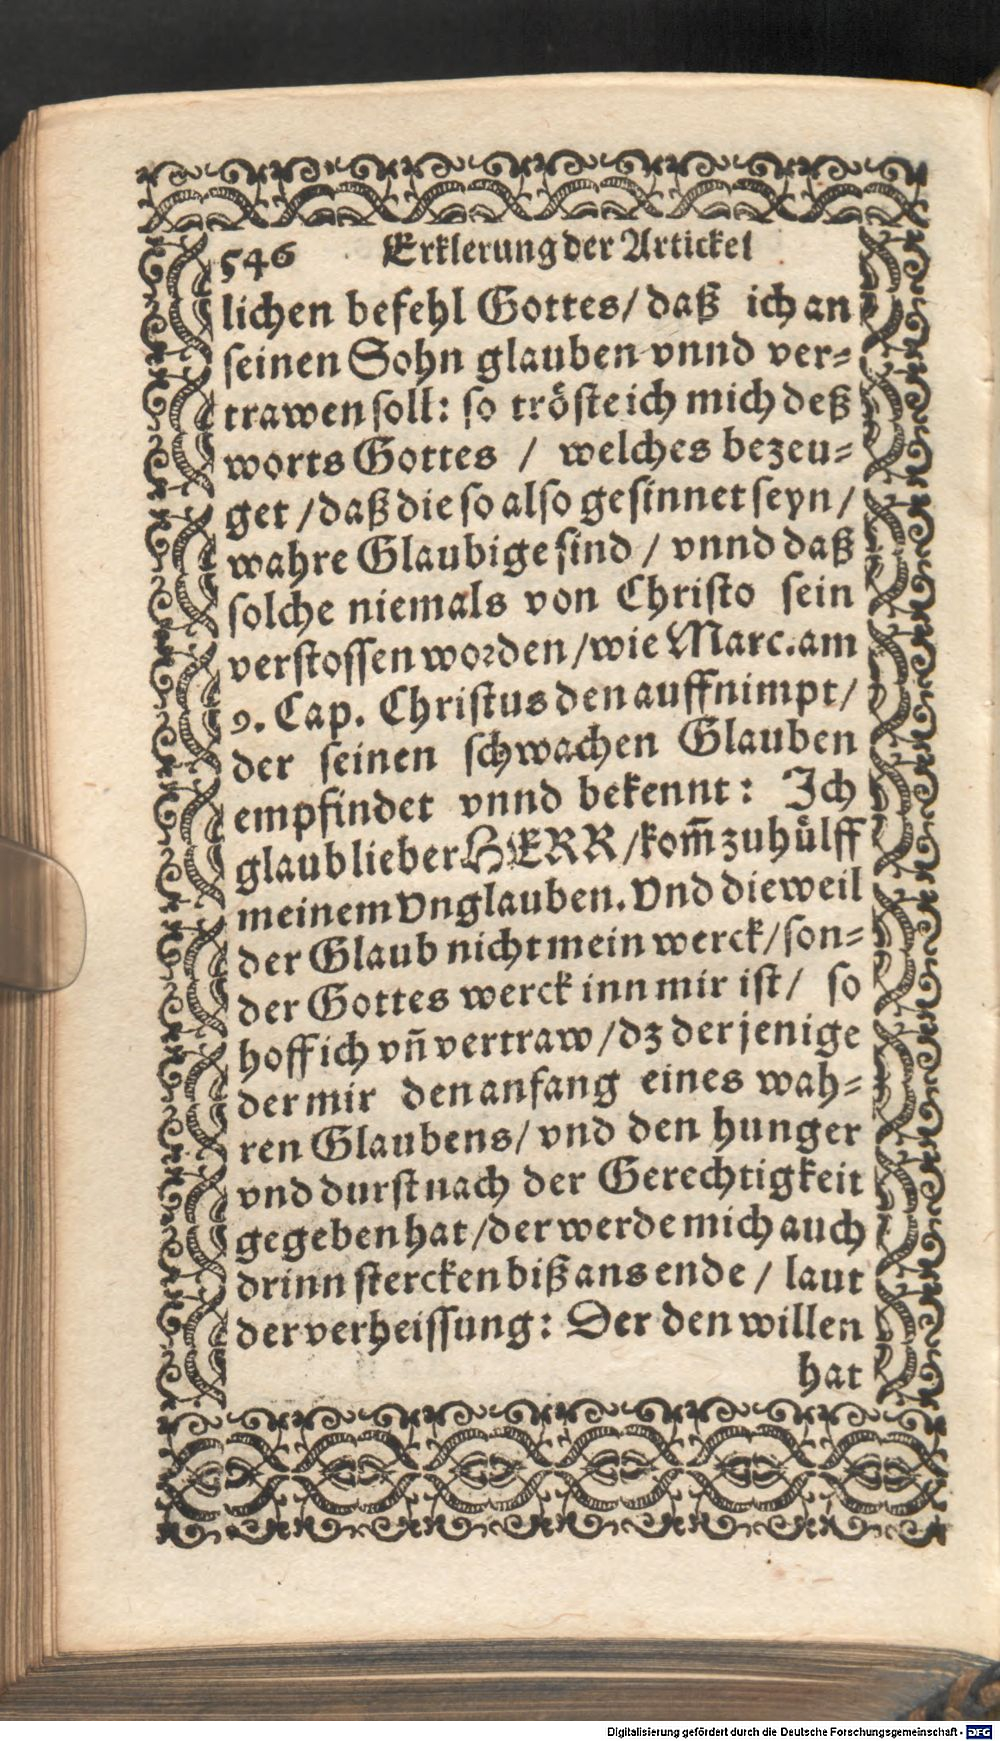 546 Erklerung der Artickel
lichen befehl Gottes/ daß ich an
seinen Sohn glauben vnnd ver⸗
trawen soll: so tröste ich mich deß
worts Gottes / welches bezeu⸗
get / daß die so also gesinnet seyn /
wahre Glaubige sind / vnnd daß
solche niemals von Christo sein
verstossen worden / wie Marc. am
9. Cap. Christus den auffnimpt/
der seinen schwachen Glauben
empfindet vnnd bekennt: Ich
glaub lieber HERR / kom̃ zu hülff
meinem Vnglauben. Vnd dieweil
der Glaub nicht mein werck / son⸗
der Gottes werck inn mir ist / so
hoff ich vñ vertraw / dz derjenige
der mir den anfang eines wah⸗
ren Glaubens/ vnd den hunger
vnd durst nach der Gerechtigkeit
gegeben hat / der werde mich auch
drinn stercken biß ans ende / laut
der verheissung: Der den willen
hat
Digitalisierung gefördert durch die Deutsche Forschungsgemeinschaft - DFG